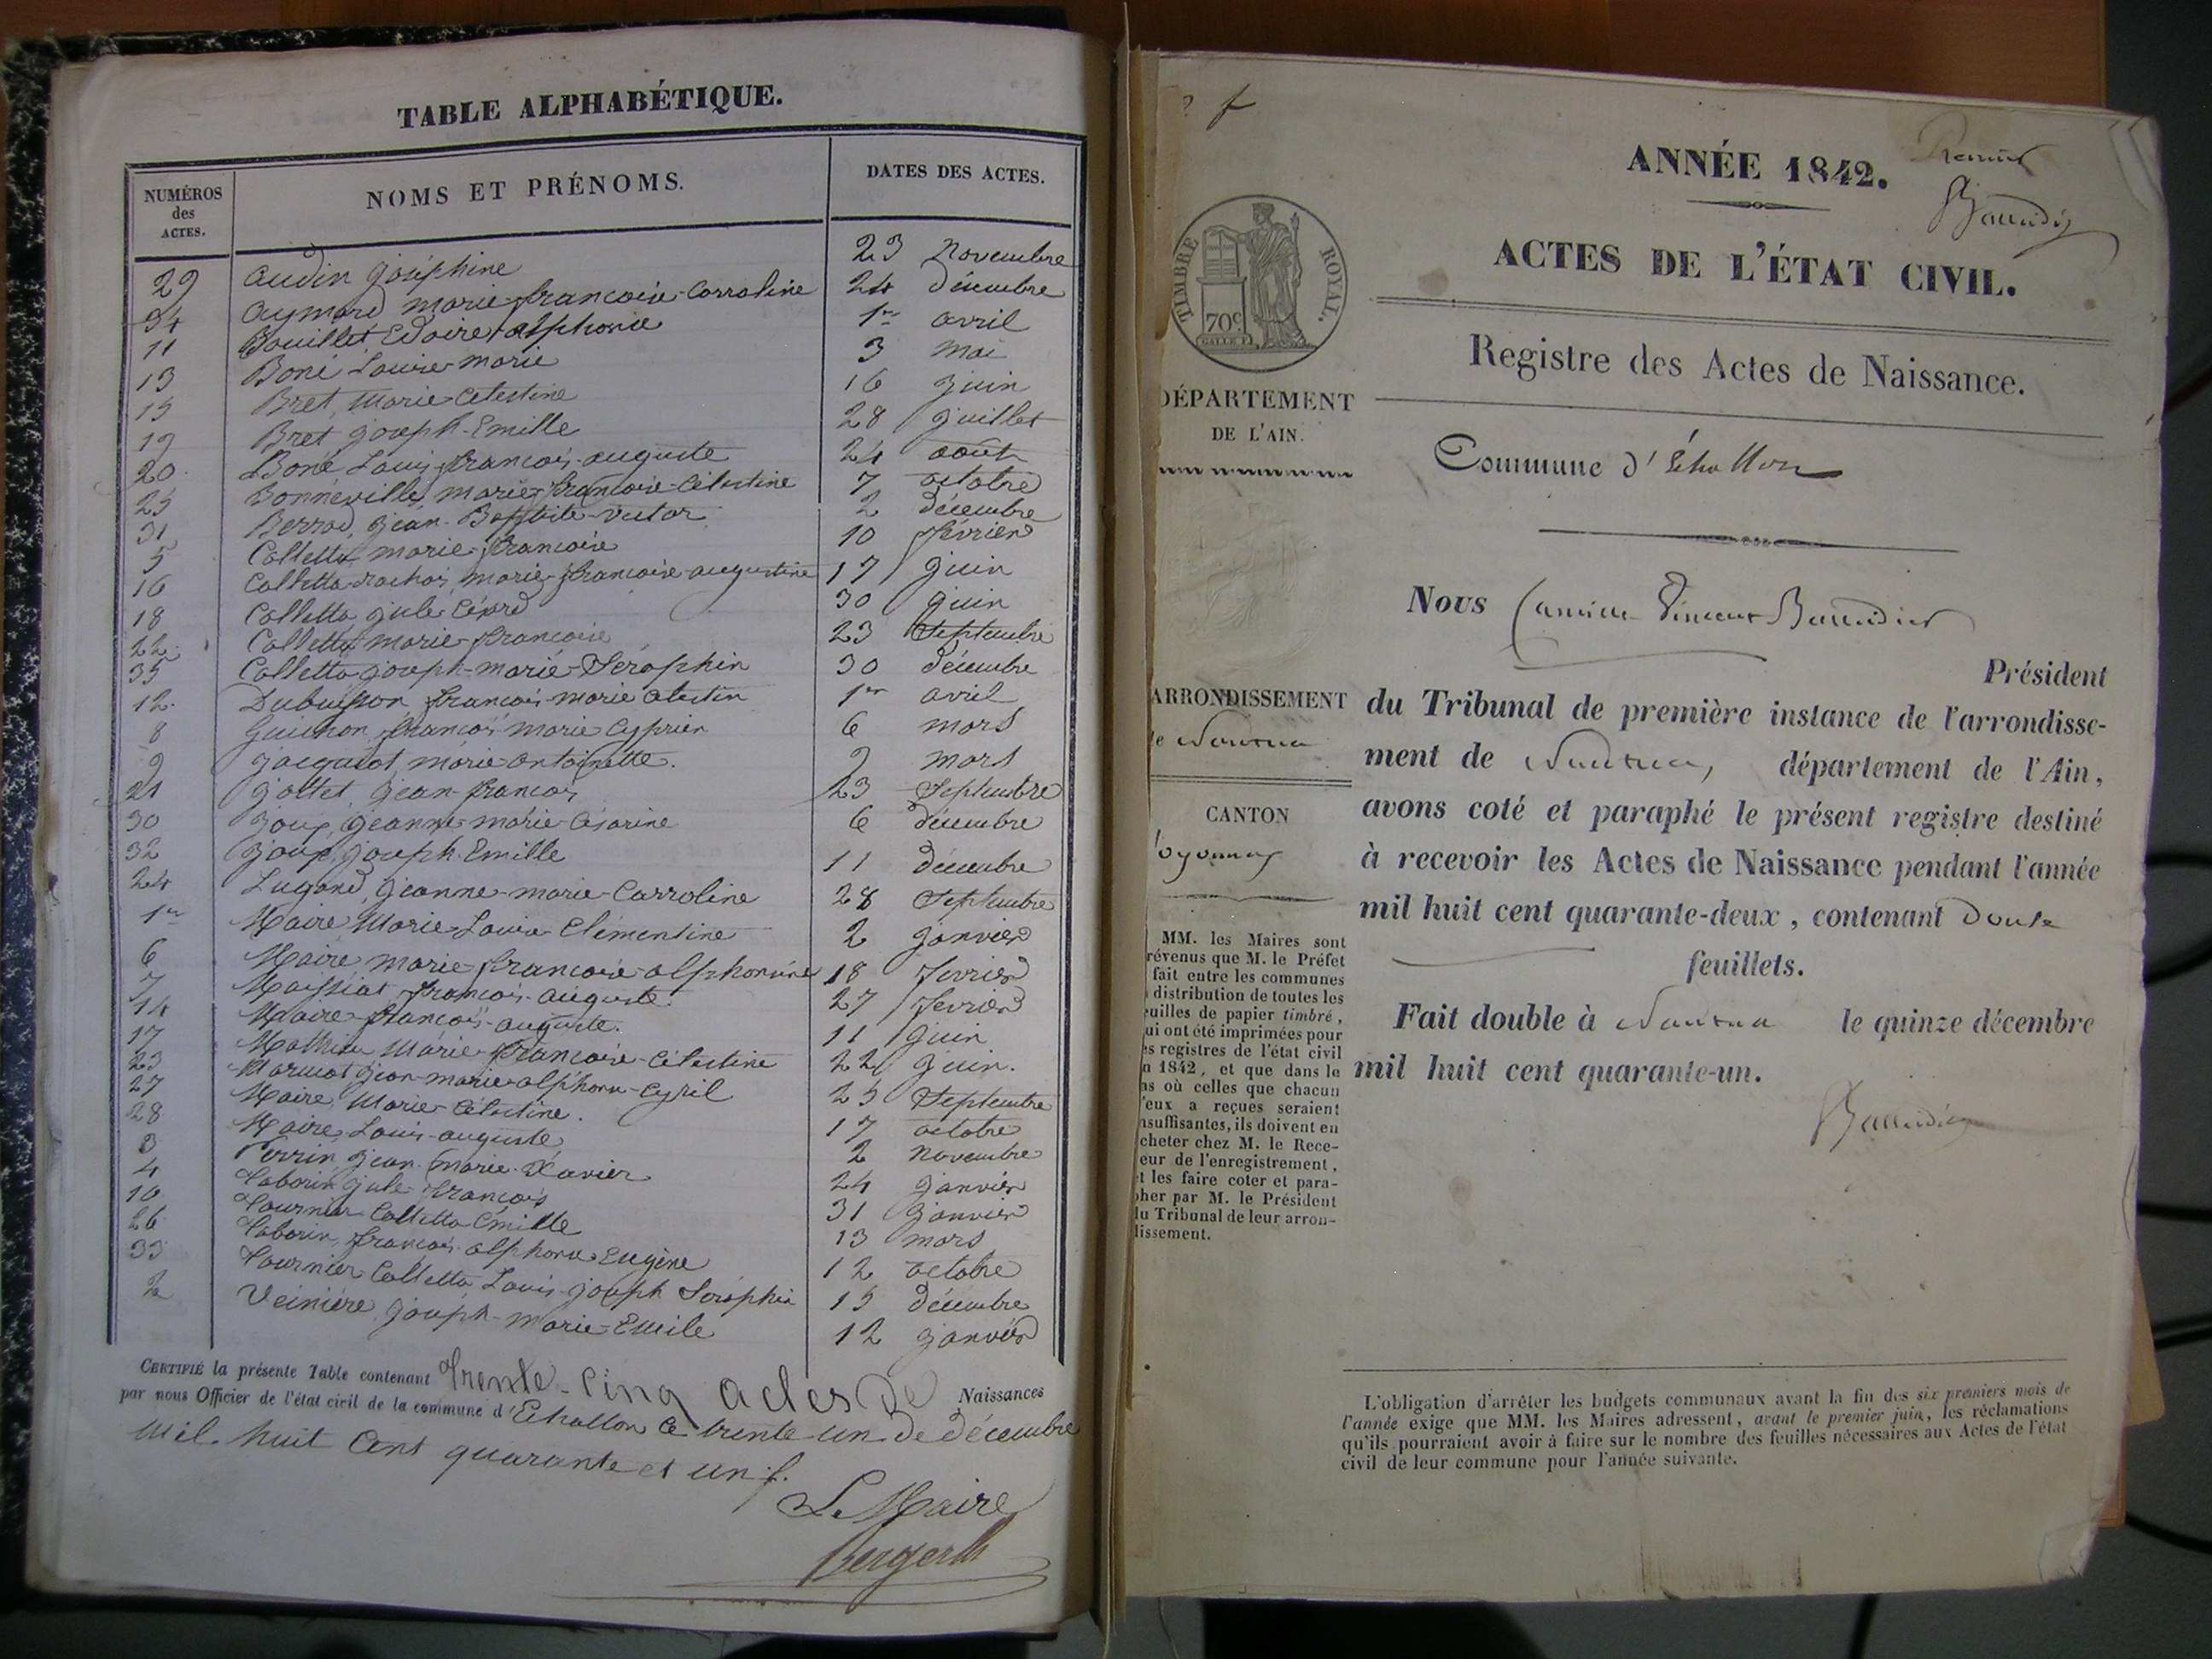 TABLE ALPHABÉTIQUE.
NUMÉROS des ACTES.
NOMS ET PRÉNOMS.
DATES DES ACTES.
29 Audin Joséphine 23 Novembre
34 Aymard marie-francoise-Carroline 24 décembre
11 Bouillet alphonse 1er avril
13 Boné Louise-Marie 3 mai
15 Bret, Marie-Celestine 16 Juin
19 Bret Joseph-Emille 28 Juillet
20 Boné Louis francois-auguste 24 août
25 Bonneville, marie-francoise-Célestine 7 octobre
31 Berrod, Jean-Baptiste-Victor 2 décembre
5 Colletta marie-francoise 10 février
16 Colletta marie-francoise-augustine 17 Juin
18 Colletta Jule 30 Juin
22 Colletta marie-francoise 23 Septembre
35 Colletta Joseph-marie-Séraphin 30 décembre
12 Dubuisson francois-marie Celestin 1er avril
8 Guichon francois marie Cyprien 6 mars
9 Jacquiot marie antoinette. 9 mars
21 Jottet Jean-francois 23 Septembre
30 Joux, Jeanne-marie-Césarine 6 décembre
32 Joux, Joseph-Emille 11 décembre
24 Lugand, Jeanne-marie-Carroline 28 Septembre
1er Maire Marie-Louise Clémentine 2 Janvier
6 Maire marie-francoise-alphonsine 18 fevrier
7 Maissiat francois-auguste. 27 fevrier
14 Maire-francois-auguste. 11 Juin
17 Mathieu Marie-francoise-Célestine 22 Juin.
23 Jean-marie-alphonse-Cyril 25 Septembre
27 Maire Marie-Célestine. 17 octobre
28 Maire, Louis-auguste 2 Novembre
3 Perrin Jean-Marie-Xavier 24 Janvier
4 Taborin Jule-francois 31 Janvier
10 Tournier-Colletta Emille 13 mars
26 Taborin, francois-alphonse-Eugène 12 octobre
33 Tournier-Colletta Louis-Joseph Séraphin 15 décembre
2 Veinière Joseph-Marie-Emile 12 Janvier
CERTIFIÉ la présente Table contenant Trente-Cinq actes de Naissances
par nous Officier de l'état civil de la commune d'Echallon ce trente-un de décembre
mil huit Cent quarante et un.
Le Maire
ANNÉE 1842.
Premier
ACTES DE L'ÉTAT CIVIL.
TIMBRE ROYAL.
70c
Registre des Actes de Naissance.
DÉPARTEMENT
DE L'AIN.
Commune d'Échallon
Nous Camille Vincent Baudin
Président
ARRONDISSEMENT
de Nantua
du Tribunal de première instance de l'arrondisse-
ment de Nantua, département de l'Ain,
avons coté et paraphé le présent registre destiné
à recevoir les Actes de Naissance pendant l'année
mil huit cent quarante-deux, contenant Douze
feuillets.
Fait double à Nantua le quinze décembre
mil huit cent quarante-un.
CANTON
d'oyonnax
MM. les Maires sont
révenus que M. le Préfet
fait entre les communes
distribution de toutes les
euilles de papier timbré,
ui ont été imprimées pour
es registres de l'état civil
n 1842, et que dans le
as où celles que chacun
'eux a reçues seraient
nsuffisantes, ils doivent en
cheter chez M. le Rece-
eur de l'enregistrement,
t les faire coter et para-
pher par M. le Président
du Tribunal de leur arron-
dissement.
L'obligation d'arrêter les budgets communaux avant la fin des six premiers mois de
l'année exige que MM. les Maires adressent, avant le premier juin, les réclamations
qu'ils pourraient avoir à faire sur le nombre des feuilles nécessaires aux Actes de l'état
civil de leur commune pour l'année suivante.